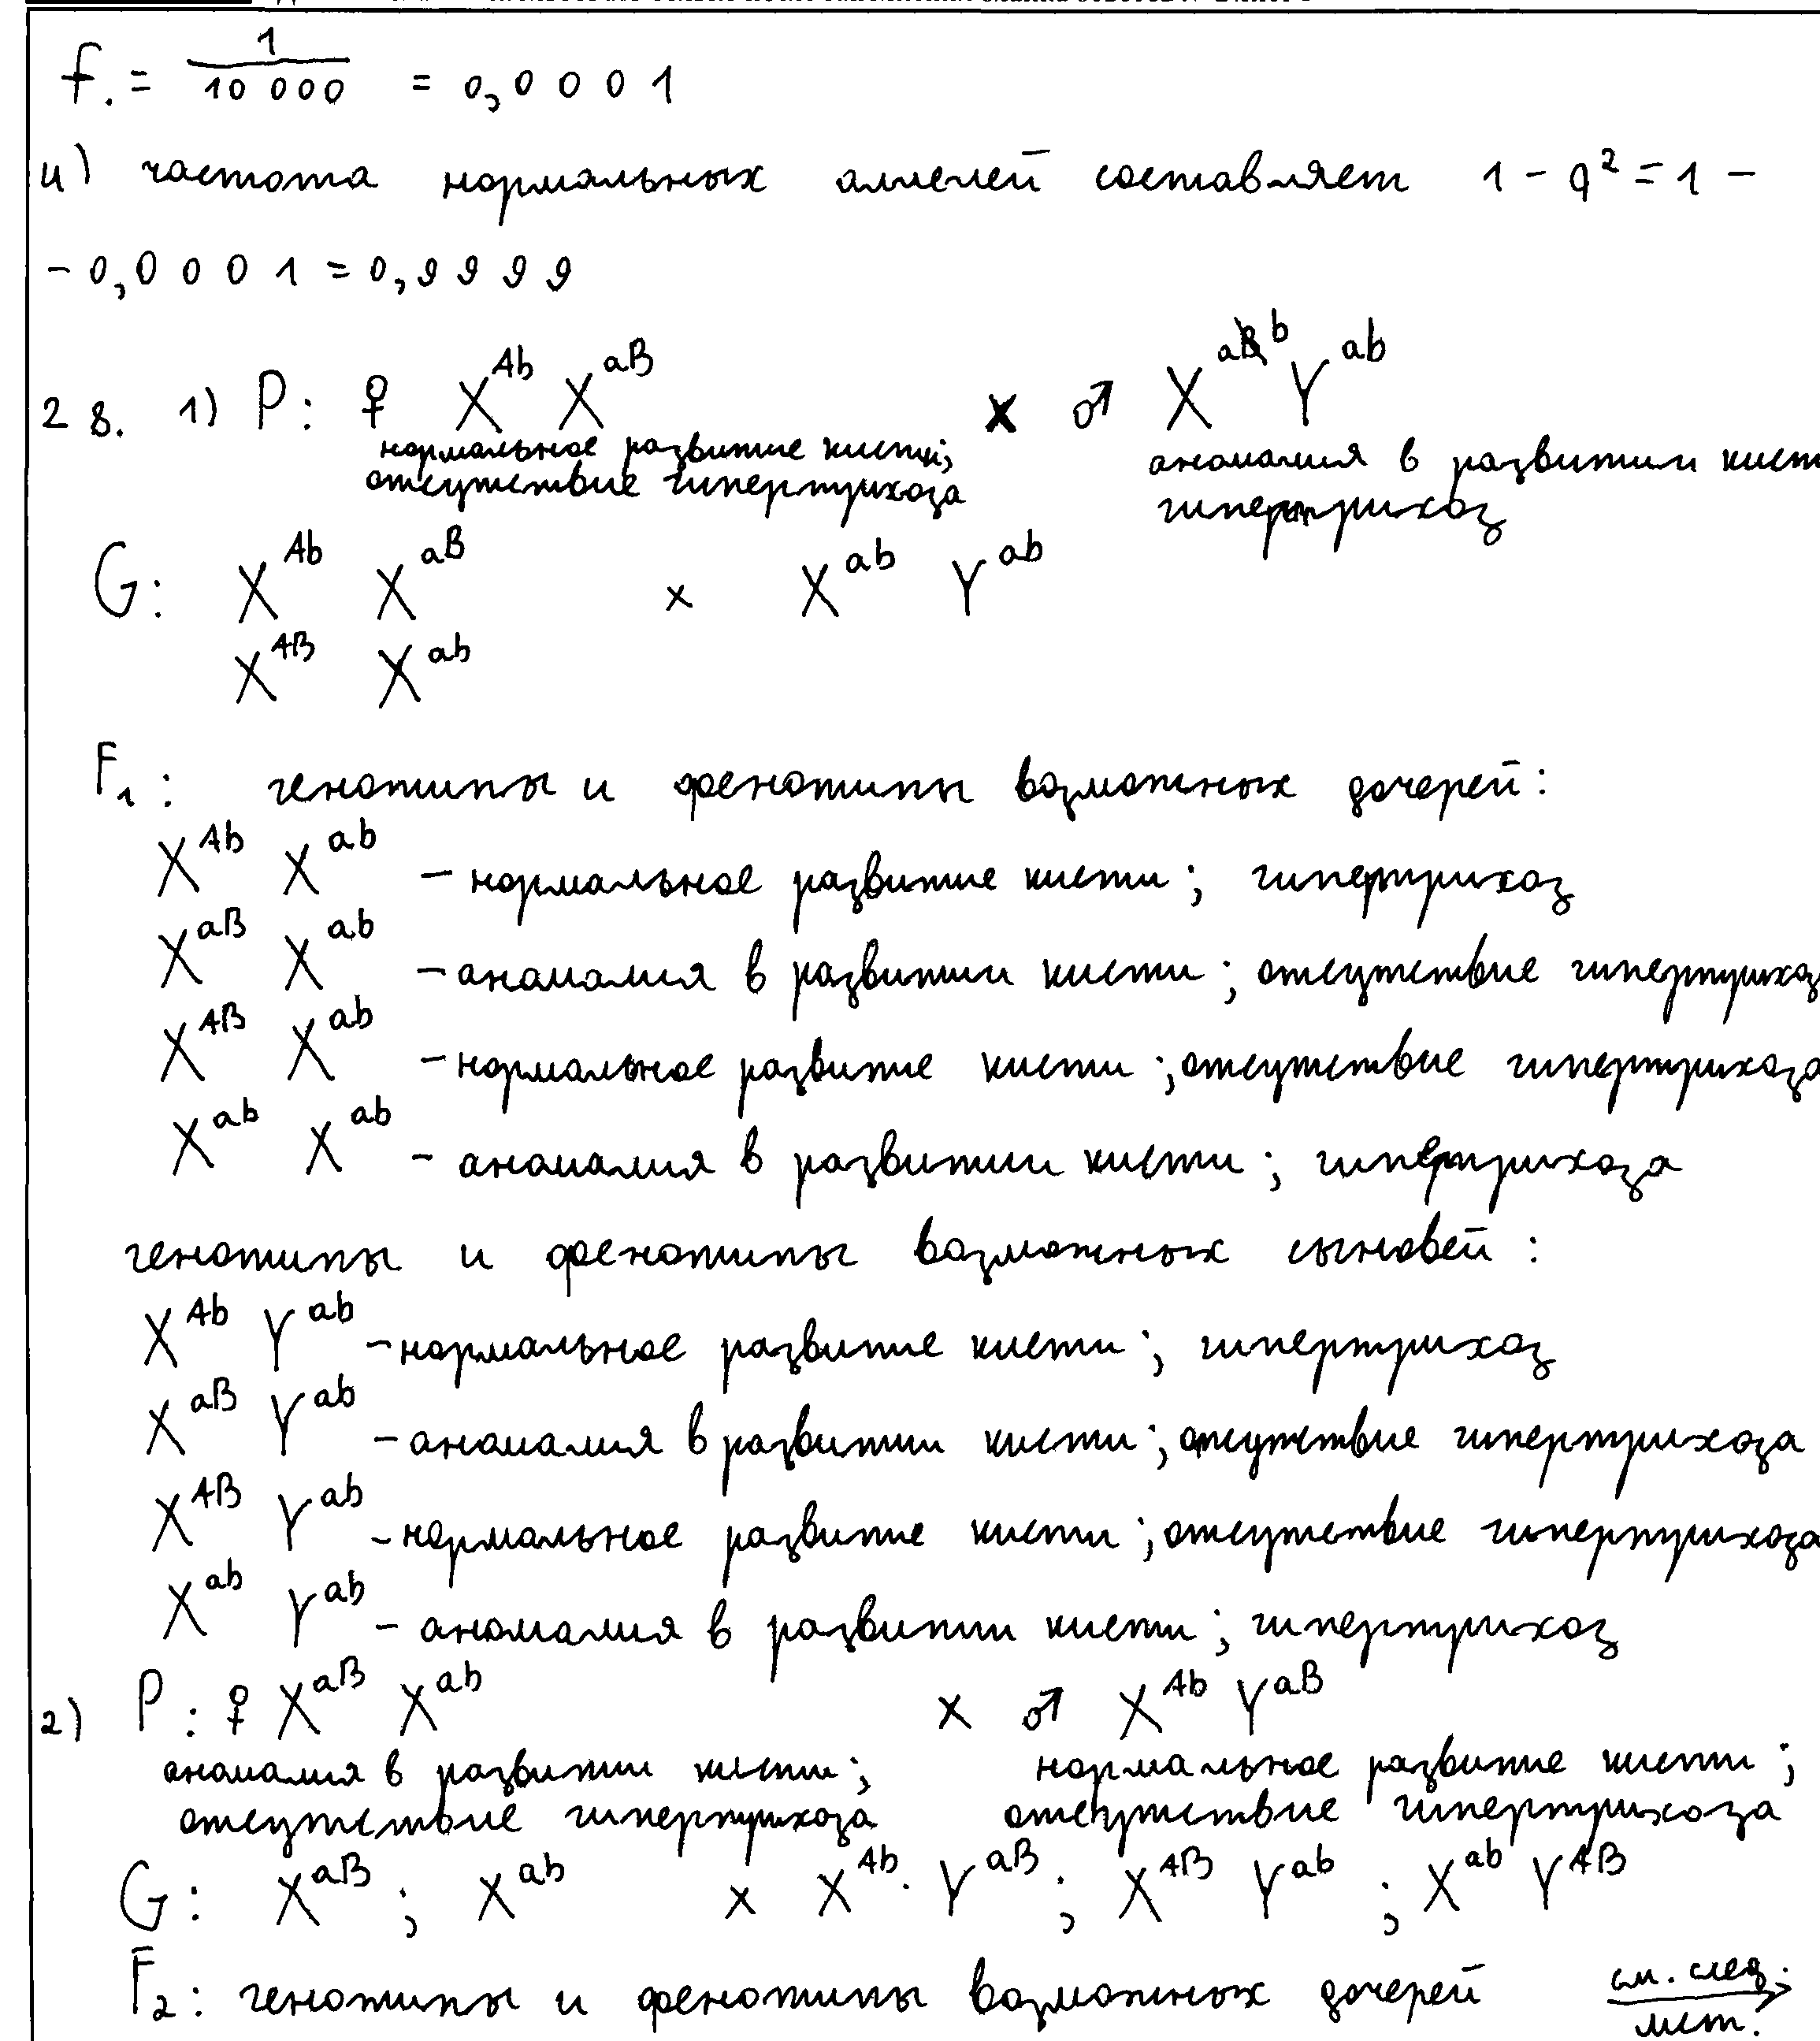 f. = 1/10 000 = 0,0001
4) частота нормальных аллелей составляет 1 - q² = 1 -
- 0,0001 = 0,9999
28. 1) P: ♀ X^Ab X^aB x ♂ X^ab Y^ab
нормальное развитие кисти; аномалия в развитии кист
отсутствие гипертрихоза гипертрихоз
G: X^Ab X^aB x X^ab Y^ab
X^AB X^ab
F₁: генотипы и фенотипы возможных дочерей:
X^Ab X^ab - нормальное развитие кисти; гипертрихоз
X^aB X^ab - аномалия в развитии кисти; отсутствие гипертрихоз
X^AB X^ab - нормальное развитие кисти; отсутствие гипертрихоза
X^ab X^ab - аномалия в развитии кисти; гипертрихоза
генотипы и фенотипы возможных сыновей:
X^Ab Y^ab - нормальное развитие кисти; гипертрихоз
X^aB Y^ab - аномалия в развитии кисти; отсутствие гипертрихоза
X^AB Y^ab - нормальное развитие кисти; отсутствие гипертрихоза
X^ab Y^ab - аномалия в развитии кисти; гипертрихоз
2) P: ♀ X^aB X^ab x ♂ X^Ab Y^aB
аномалия в развитии кисти; нормальное развитие кисти;
отсутствие гипертрихоза отсутствие гипертрихоза
G: X^aB; X^ab x X^Ab. Y^aB; X^AB Y^ab; X^ab Y^AB
F₂: генотипы и фенотипы возможных дочерей см. след.
лист.